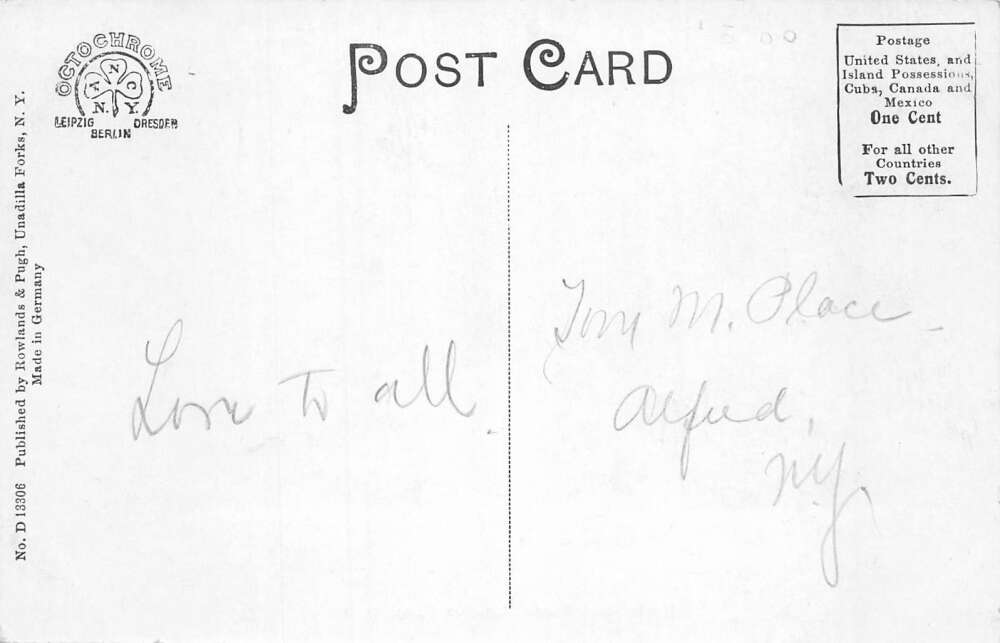 OCTOCHROME
A N C
N. Y.
LEIPZIG DRESDEN
BERLIN
POST CARD
Postage
United States, and
Island Possessions,
Cuba, Canada and
Mexico
One Cent
For all other
Countries
Two Cents.
No. D 13306 Published by Rowlands & Pugh, Unadilla Forks, N. Y.
Made in Germany
Love to all.
Tom M. Place
Alfred,
N.Y.